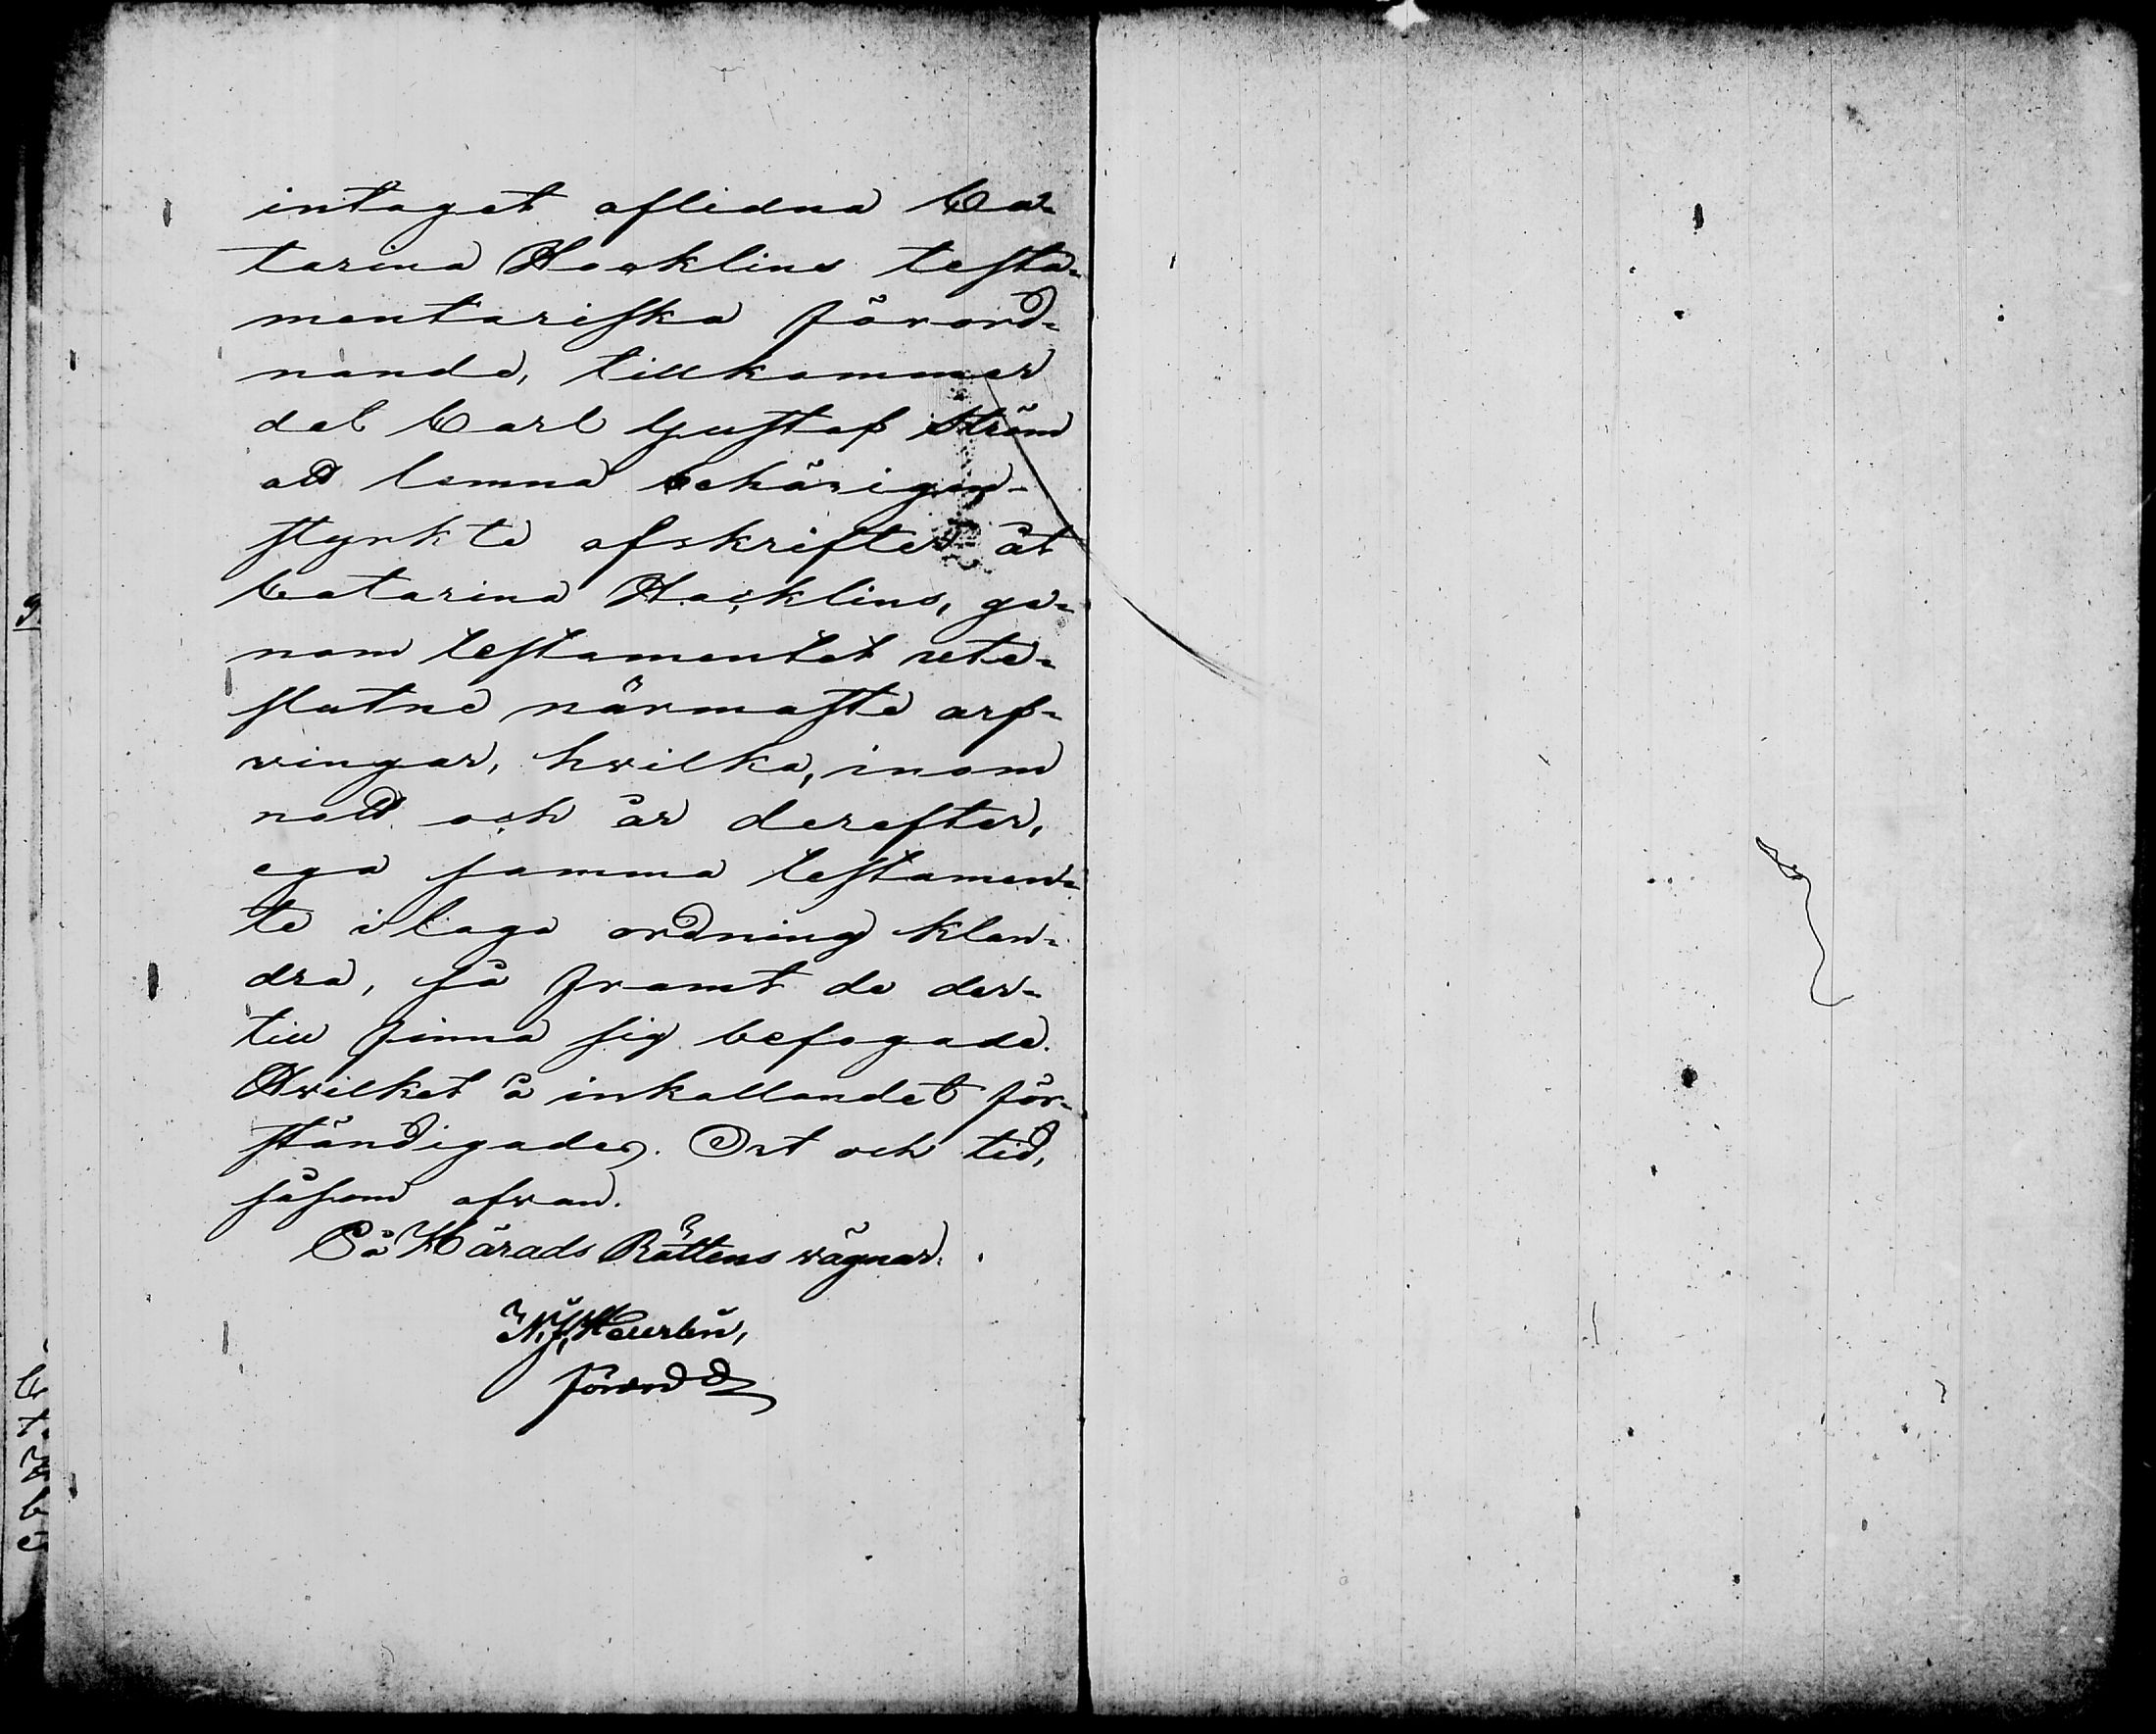 intaget aflidna Ca-
tarina Hacklins testa-
mentariska förord-
nande, tillkommer
det Carl Gustaf Ström
att lemna behörigen
styrkte afskrifter åt
Catarina Hacklins, ge-
nom testamentet ute-
slutne närmaste arf-
wingar, hwilka, inom
natt och år derefter,
ega samma testamen-
te i laga ordning klan-
dra, så framt de der-
till finna sig befogade.
Hwilket å inkallandet för-
ständigades. Ort och tid,
såsom ofwan.
På Härads Rättens wägnar.
förord